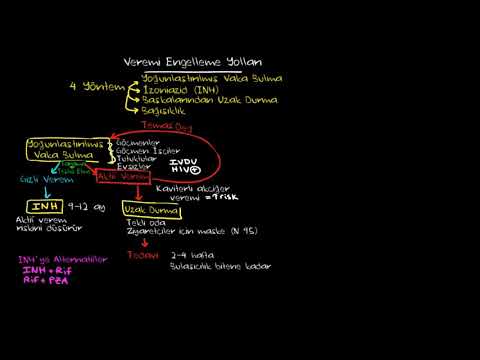 Veremi Engelleme Yolları
4 Yöntem
Yoğunlaştırılmış Vaka Bulma
İzoniazid (INH)
Başkalarından Uzak Durma
Bağışıklık
Temas
Yoğunlaştırılmış
Vaka Bulma
Göçmenler
Göçmen İşçiler
Tutuklular
Evsizler
IVDU
HIV+
Gizli Verem
Aktif Verem
Kaviterli akciğer
veremi = ↑risk
INH
9-12 ay
Aktif verem
riskini düşürür
Uzak Durma
Tekli oda
Ziyaretçiler için maske (N 95)
Tedavi
2-4 hafta
Bulaşıcılık bitene kadar
INH'ye Alternatifler
INH + Rif
Rif + PZA